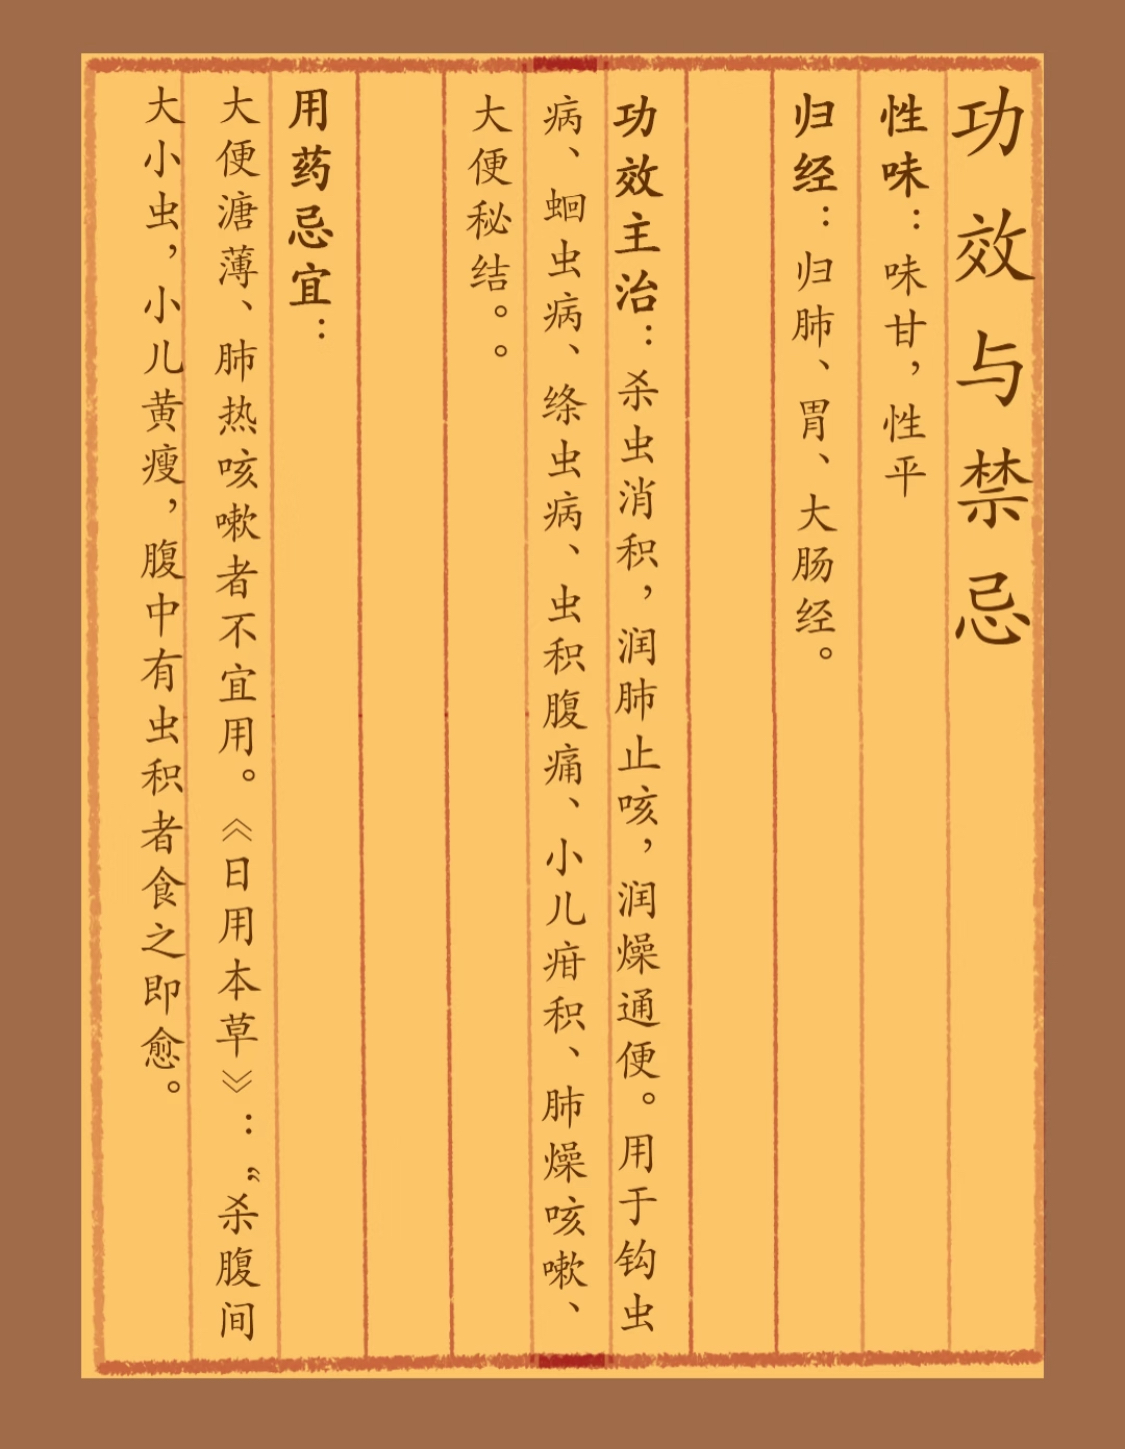 功效与禁忌
性味：味甘，性平
归经：归肺、胃、大肠经。
功效主治：杀虫消积，润肺止咳，润燥通便。用于钩虫
病、蛔虫病、绦虫病、虫积腹痛、小儿疳积、肺燥咳嗽、
大便秘结。。
用药忌宜：
大便溏薄、肺热咳嗽者不宜用。《日用本草》：“杀腹间
大小虫，小儿黄瘦，腹中有虫积者食之即愈。